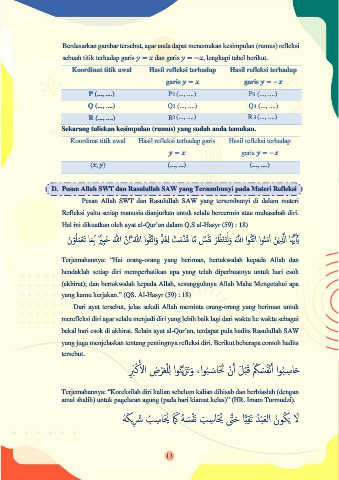 Berdasarkan gambar tersebut, agar anda dapat menemukan kesimpulan (rumus) refleksi
sebuah titik terhadap garis y = x dan garis y = −x, lengkapi tabel berikut.
Koordinat titik awal Hasil refleksi terhadap Hasil refleksi terhadap
garis y = x garis y = −x
P (..., ....) P1 (..., ....) P1 (..., ....)
Q (..., ....) Q1 (..., ....) Q1 (..., ....)
R (..., ....) R1 (..., ....) R1 (..., ....)
Sekarang tuliskan kesimpulan (rumus) yang sudah anda temukan.
Koordinat titik awal Hasil refleksi terhadap garis Hasil refleksi terhadap
y = x garis y = −x
(x, y) (..., ...) (..., ...)
D. Pesan Allah SWT dan Rasulullah SAW yang Tersembunyi pada Materi Refleksi
Pesan Allah SWT dan Rasulullah SAW yang tersembunyi di dalam materi
Refleksi yaitu setiap manusia dianjurkan untuk selalu bercermin atau muhasabah diri.
Hal ini dikuatkan oleh ayat al-Qur'an dalam Q.S al-Hasyr (59) : 18)
يٰٓاَيُّهَا الَّذِيْنَ اٰمَنُوا اتَّقُوا اللّٰهَ وَلْتَنْظُرْ نَفْسٌ مَّا قَدَّمَتْ لِغَدٍۚ وَاتَّقُوا اللّٰهَ ۗاِنَّ اللّٰهَ خَبِيْرٌ ۢبِمَا تَعْمَلُوْنَ
Terjemahannya: "Hai orang-orang yang beriman, bertakwalah kepada Allah dan
hendaklah setiap diri memperhatikan apa yang telah diperbuatnya untuk hari esok
(akhirat); dan bertakwalah kepada Allah, sesungguhnya Allah Maha Mengetahui apa
yang kamu kerjakan." (QS. Al-Hasyr (59) : 18)
Dari ayat tersebut, jelas sekali Allah meminta orang-orang yang beriman untuk
merefleksi diri agar selalu menjadi diri yang lebih baik lagi dari waktu ke waktu sebagai
bekal hari esok di akhirat. Selain ayat al-Qur'an, terdapat pula hadits Rasulullah SAW
yang juga menjelaskan tentang pentingnya refleksi diri. Berikut beberapa contoh hadits
tersebut.
حَاسِبُوْا أَنْفُسَكُمْ قَبْلَ أَنْ تُحَاسَبُوْا، وَتَزَيَّنُوْا لِلْعَرْضِ الْأَكْبَرِ
Terjemahannya: "Koreksilah diri kalian sebelum kalian dihisab dan berhiaslah (dengan
amal shalih) untuk pagelaran agung (pada hari kiamat kelas)" (HR. Imam Turmudzi).
لَا يَكُوْنُ الْعَبْدُ تَقِيًّا حَتَّى يُحَاسِبَ نَفْسَهُ كَمَا يُحَاسِبُ شَرِيْكَهُ
13